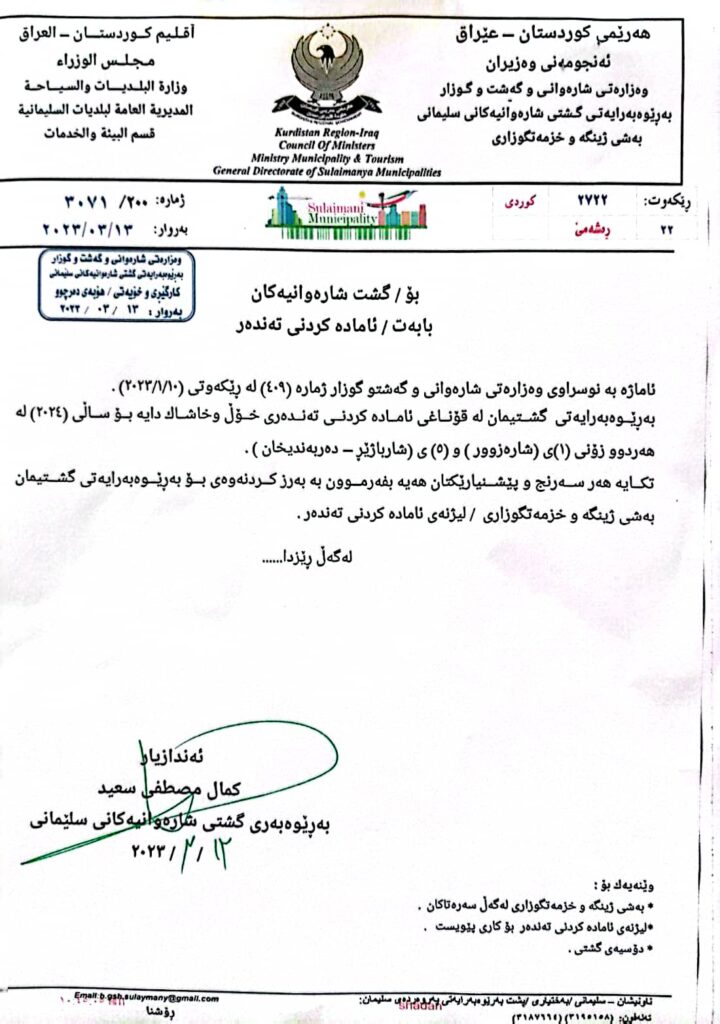 هەرێمی کوردستان – عێراق
ئەنجومەنی وەزیران
وەزارەتی شارەوانی و گەشت و گوزار
بەڕێوەبەرایەتی گشتی شارەوانیەکانی سلێمانی
بەشی ژینگە و خزمەتگوزاری
Kurdistan Region-Iraq
Council Of Ministers
Ministry Municipality & Tourism
General Directorate of Sulaimanya Municipalities
أقليم كوردستان – العراق
مجلس الوزراء
وزارة البلديات والسياحة
المديرية العامة لبلديات السليمانية
قسم البيئة والخدمات
ڕێکەوت: ٢٧٢٢ کوردی
٢٢ ڕەشەمێ
Sulaimani
Municipality
ژمارە: ٢٠٠/ ٣٠٧١
بەروار: ٢٠٢٣/٠٣/١٣
وەزارەتی شارەوانی و گەشت و گوزار
بەڕێوەبەرایەتی گشتی شارەوانیەکانی سلێمانی
کارگێڕی و خۆیەتی / هۆبەی دەرچوو
بەروار : ١٣ / ٠٣ / ٢٠٢٣
بۆ / گشت شارەوانیەکان
بابەت / ئامادە کردنی تەندەر
ئاماژە بە نوسراوی وەزارەتی شارەوانی و گەشتو گوزار ژمارە (٤٠٩) لە ڕێکەوتی (٢٠٢٣/١/١٠) .
بەڕێوەبەرایەتی گشتیمان لە قۆناغی ئامادە کردنی تەندەری خۆڵ وخاشاك دایە بۆ ساڵی (٢٠٢٤) لە
هەردوو زۆنی (١)ی (شارەزوور ) و (٥) ی (شارباژێڕ – دەربەندیخان ) .
تکایە هەر سەرنج و پێشنیارێکتان هەیە بفەرموون بە بەرز کردنەوەی بۆ بەڕێوەبەرایەتی گشتیمان
بەشی ژینگە و خزمەتگوزاری / لیژنەی ئامادە کردنی تەندەر .
لەگەڵ ڕێزدا......
ئەندازیار
کمال مصطفی سعید
بەڕێوەبەری گشتی شارەوانیەکانی سلێمانی
١٢ / ٣ / ٢٠٢٣
وێنەیەك بۆ :
* بەشی ژینگە و خزمەتگوزاری لەگەڵ سەرەتاکان .
*لیژنەی ئامادە کردنی تەندەر بۆ کاری پێویست .
* دۆسیەی گشتی .
ناونیشان – سلێمانی /بەختیاری /پشت بەڕێوەبەرایەتی پەروەردەی سلێمان:
تەلەفون: (٣١٩٥١٥٨) (٣١٨٧٦١٤)
shadan
Email:b.gsh.sulaymany@gmail.com
ڕۆشنا